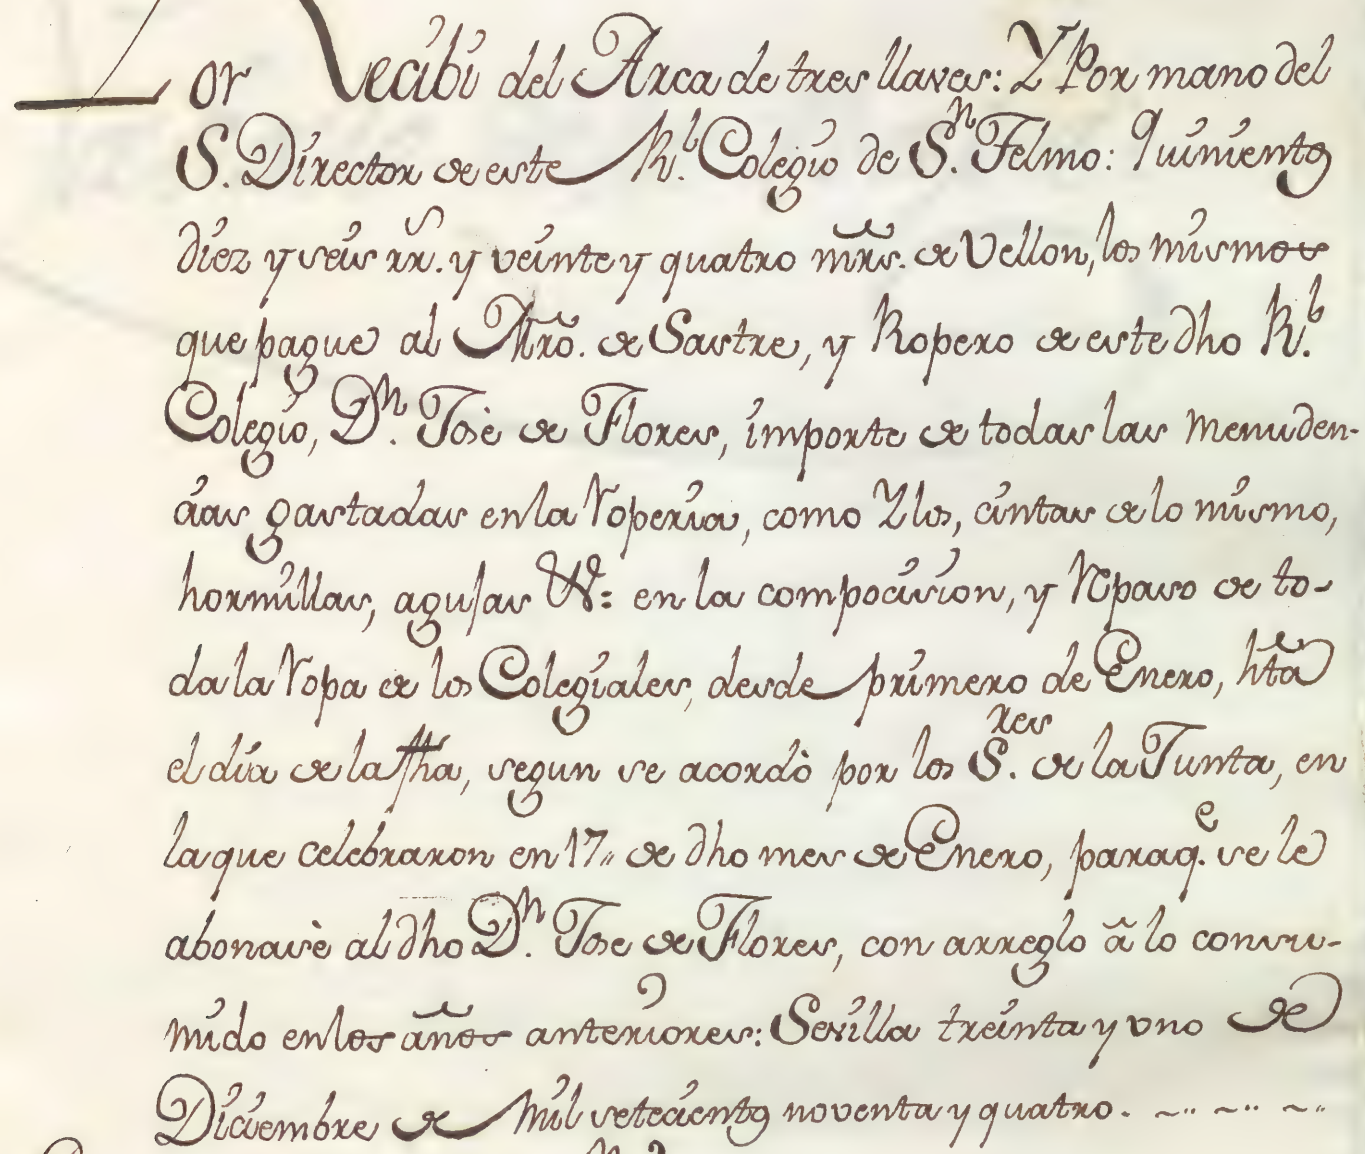 or Recibi del Arca de tres llaves: Y Por mano del
S. Director de este Rl. Colegio de Sn. Telmo: Quinientos
diez y seis rrs. y veinte y quatro mrs. de Vellon, los mismos
que pague al Mro. de Sastre, y Ropero de este dho Rl.
Colegio, Dn. Josè de Flores, importe de todas las menuden-
cias gastadas en la roperia, como Ylos, cintas de lo mismo,
hormillas, agujas &: en la composicion, y reparo de to-
da la ropa de los Colegiales, desde primero de Enero, hta
el dia de la fha, segun se acordò por los Sres. de la Junta, en
la que celebraron en 17,, de dho mes de Enero, paraqe. se le
abonasè al dho Dn. Jose de Flores, con arreglo â lo consu-
mido en los años anteriores: Sevilla treinta y uno de
Diciembre de Mil setecientos noventa y quatro. ~..~..~..